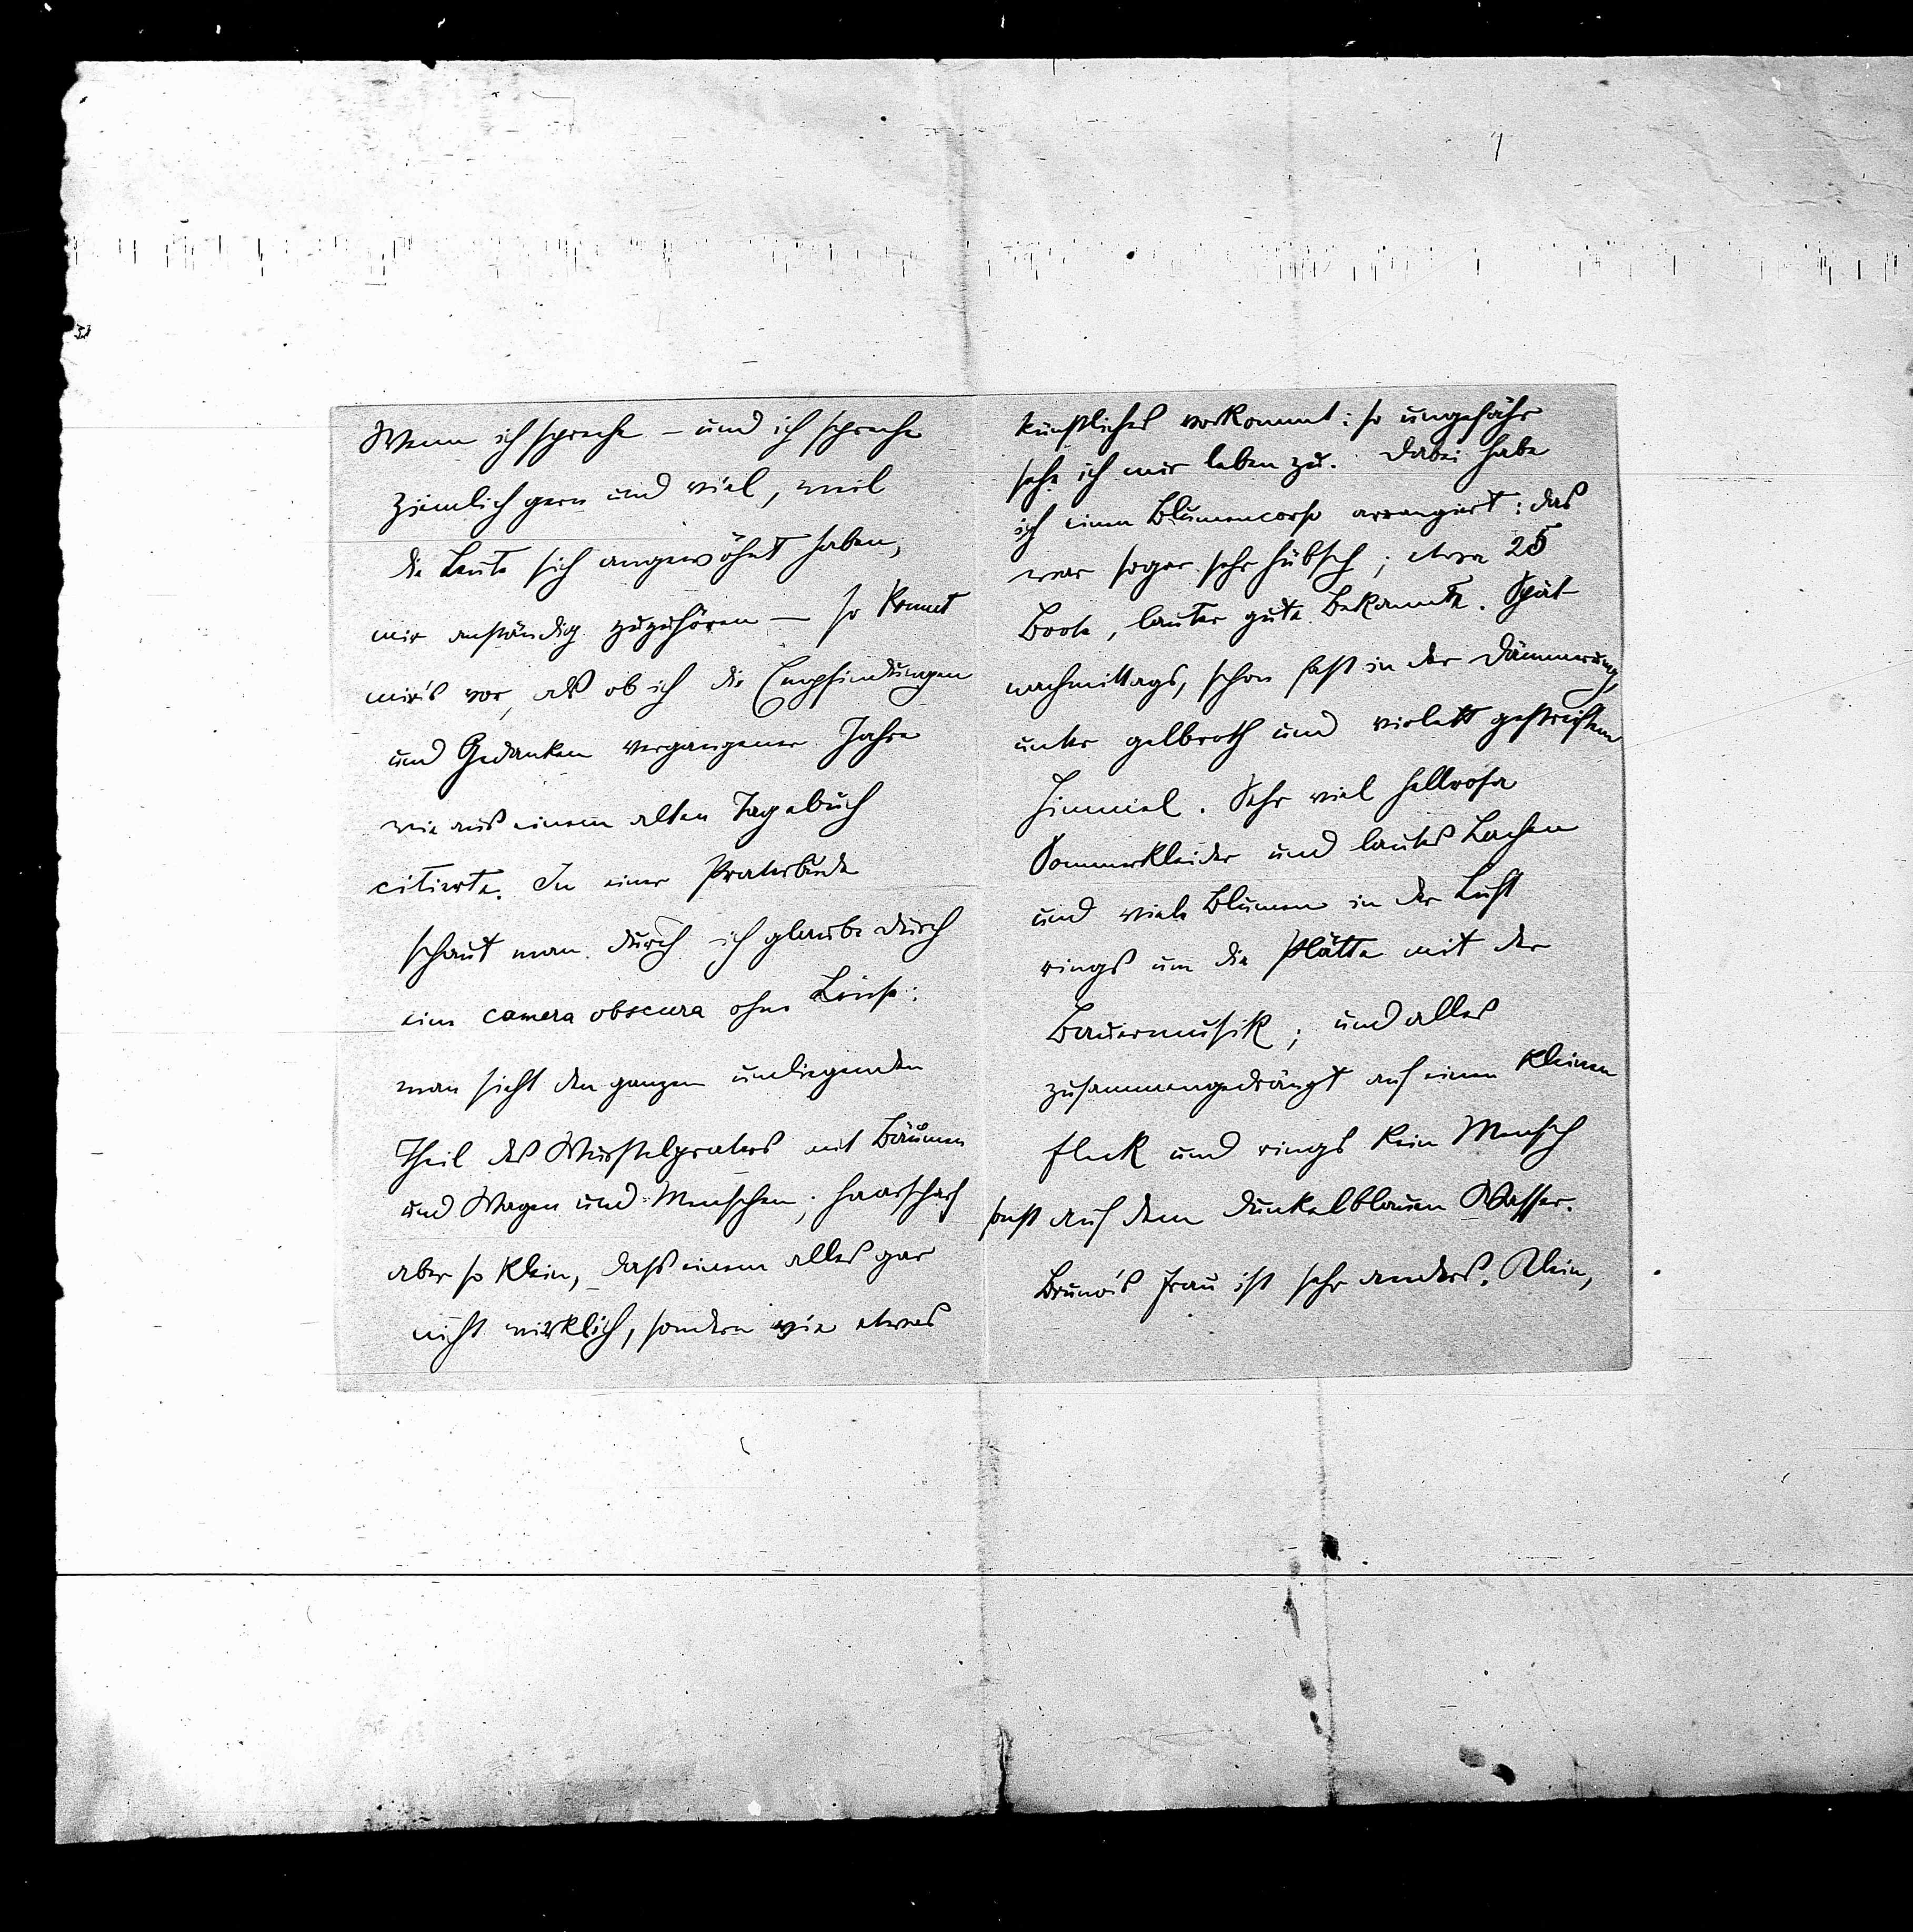 Wenn ich spreche – und ich spreche
ziemlich gern und viel, weil
die Leute sich angewöhnt haben,
mir anständig zuzuhören – so kommt
mir's vor, als ob ich die Empfindungen
und Gedanken vergangener Jahre
wie aus einem alten Tagebuch
citierte. In einer Praterbude
schaut man durch ich glaube durch
eine camera obscura ohne Linse:
man sieht den ganzen umliegenden
Theil des Wurstelpraters mit Bäumen
und Wagen und Menschen, haarscharf
aber so klein, dass einem alles gar
nicht wirklich, sondern wie etwas
künstliches vorkommt: so ungefähr
sehe ich mir leben zu. Dabei habe
ich einen Blumencorso arrangiert: das
war sogar sehr hübsch; etwa 25
Boote, lauter gute Bekannte. Spät-
nachmittags, schon fast in der Dämmerung,
unter gelbroth und violett gestreiftem
Himmel. Sehr viel hellrosa
Sommerkleider und lautes Lachen
und viele Blumen in der Luft
rings um die Plätte mit der
Bauernmusik; und alles
zusammengedrängt auf einen kleinen
Fleck und rings kein Mensch
sonst auf dem dunkelblauen Wasser.
Bruno's Frau ist sehr anders. Klein,